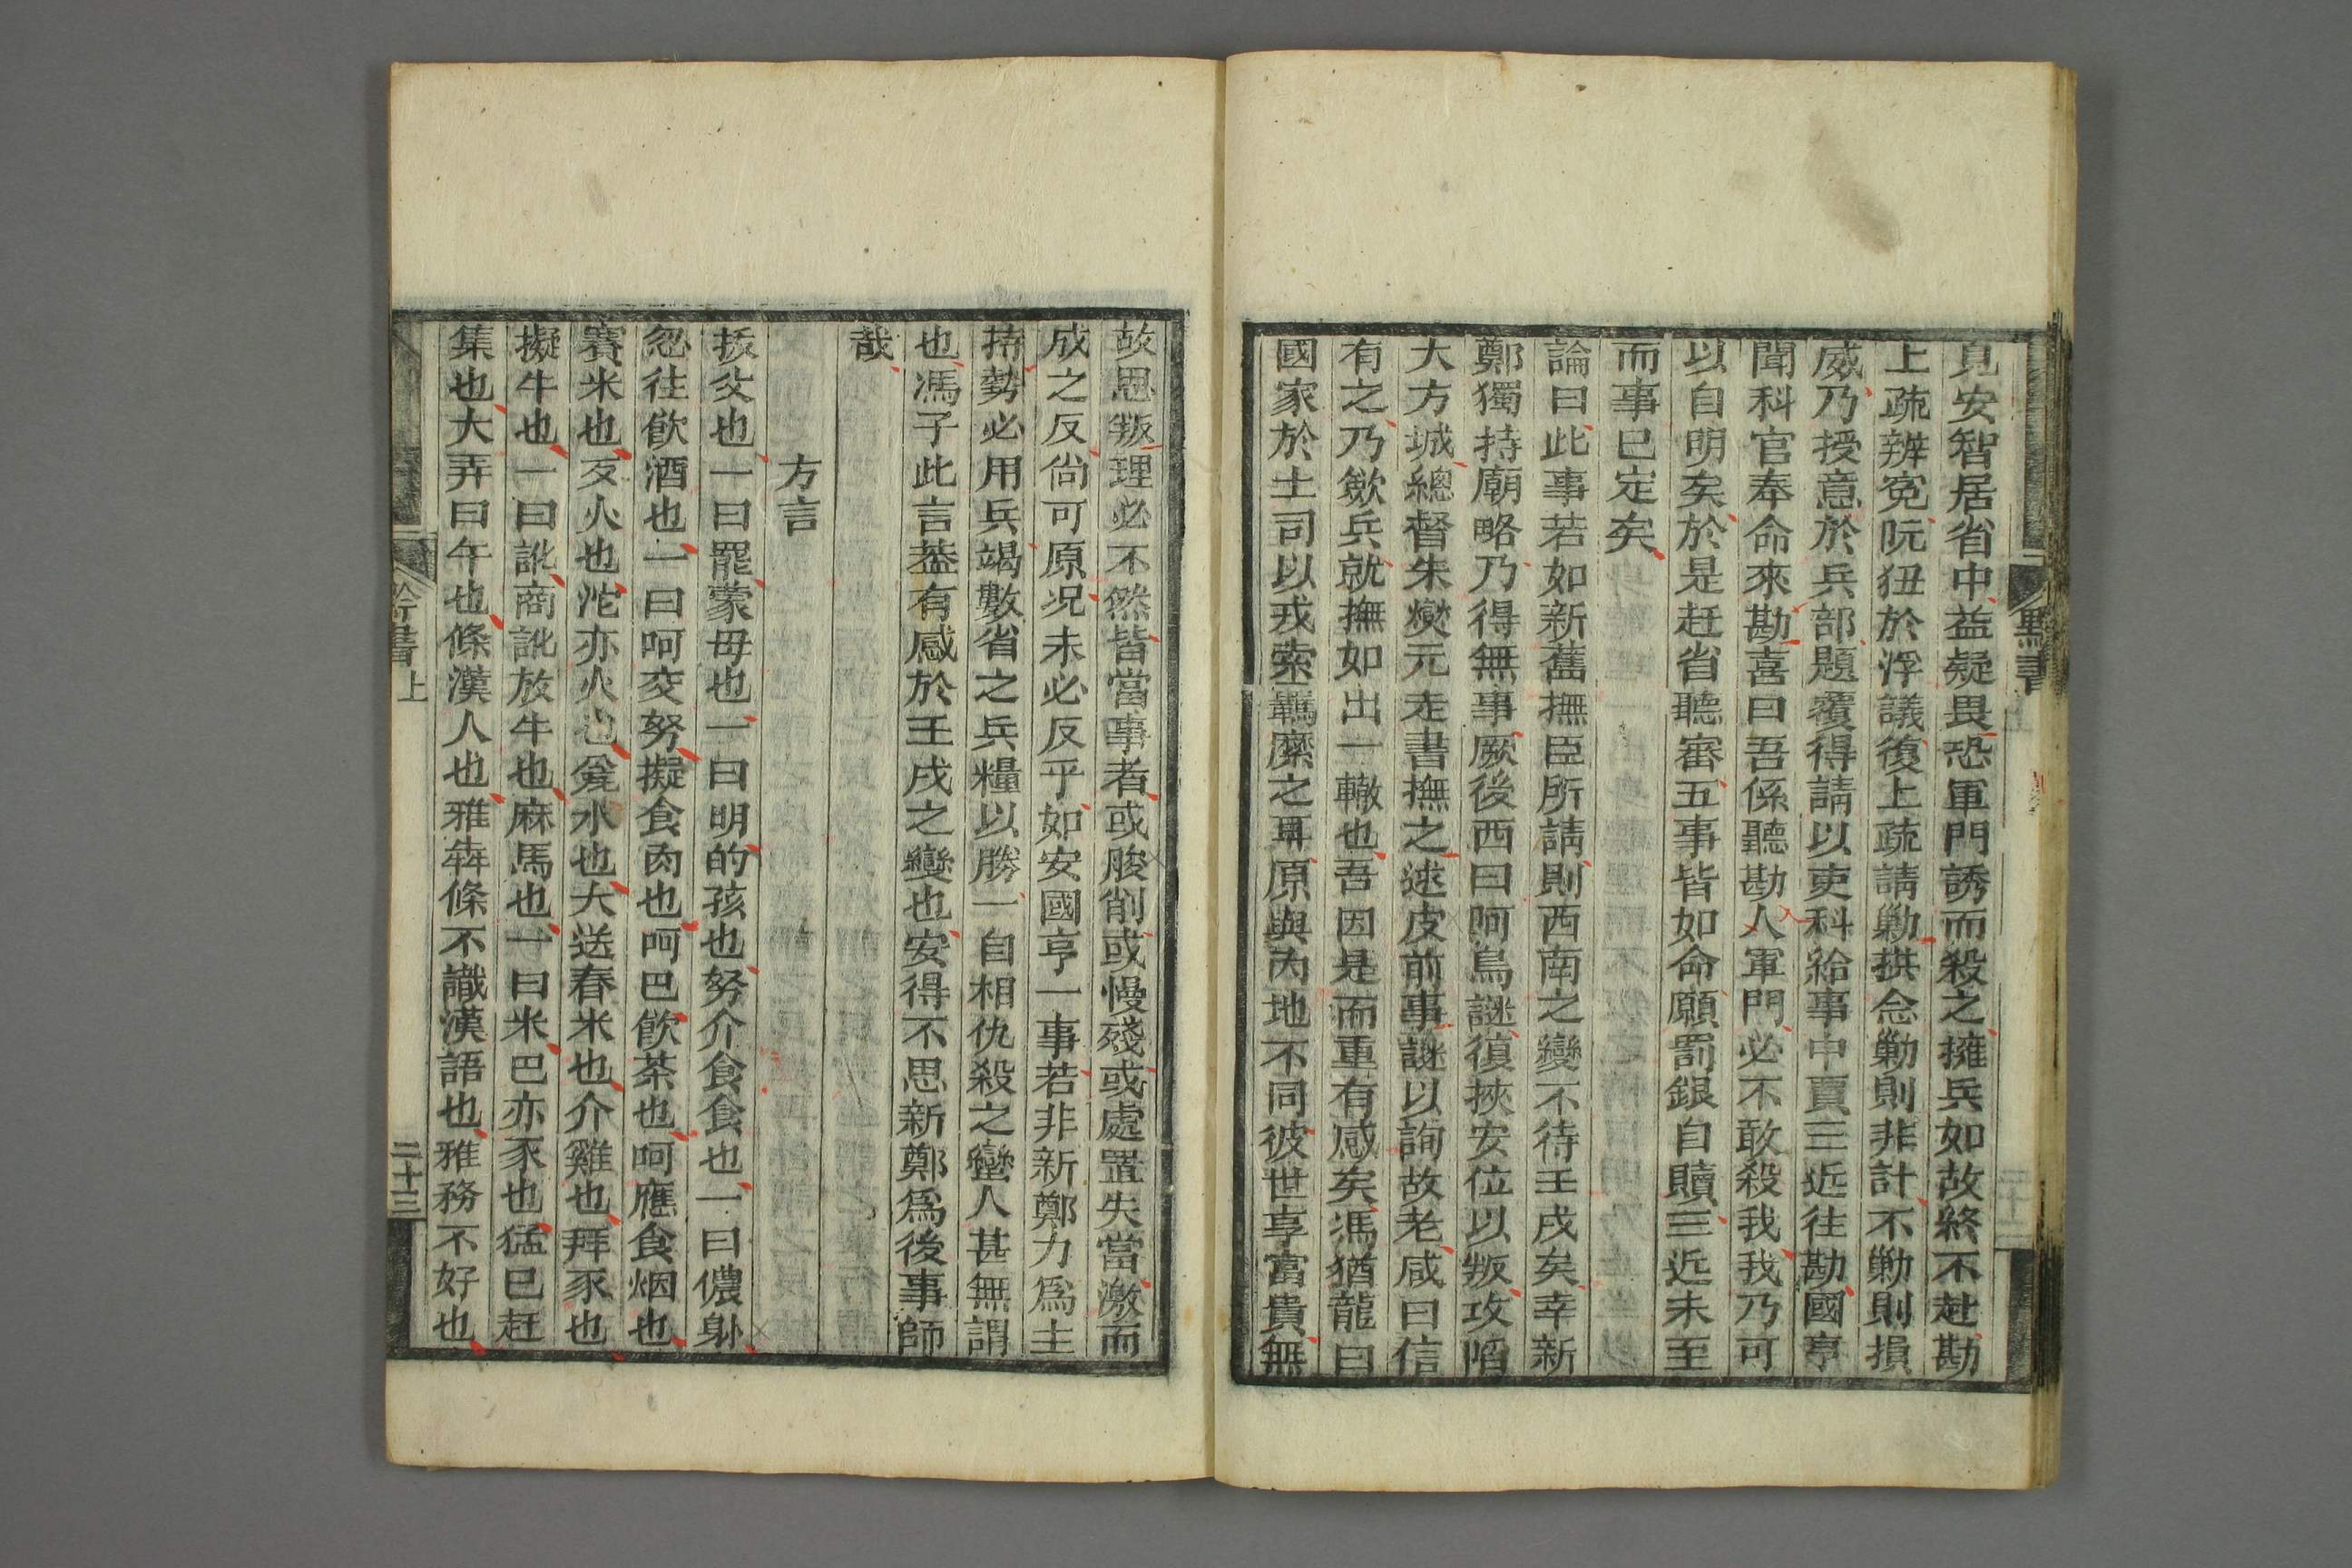 黔書
見安智居省中益疑畏恐軍門誘而殺之擁兵如故終不赴勘
上疏辨寃阮狃於浮議復上疏請勦拱念勦則非計不勦則損
威乃授意於兵部題覆得請以吏科給事中賈三近往勘國亨
聞科官奉命來勘喜曰吾係聽勘人軍門必不敢殺我我乃可
以自明矣於是赶省聽審五事皆如命願罰銀自贖三近未至
而事已定矣
論曰此事若如新舊撫臣所請則西南之變不待壬戌矣幸新
鄭獨持廟略乃得無事厥後西曰阿烏謎復挾安位以叛攻陷
大方城總督朱燮元走書撫之逮皮前事謎以詢故老咸曰信
有之乃斂兵就撫如出一轍也吾因是而重有感矣馮猶龍曰
國家於土司以戎索羈縻之耳原與內地不同彼世享富貴無
故思叛理必不然皆當事者或朘削或慢殘或處置失當激而
成之反尚可原況未必反乎如安國亨一事若非新鄭力爲主
持勢必用兵竭數省之兵糧以勝一自相仇殺之蠻人甚無謂
也馮子此言葢有感於壬戌之變也安得不思新鄭爲後事師
哉
方言
㧞父也一曰罷蒙母也一曰明的孩也努介食食也一曰儂躰
忽往飮酒也一曰呵交努擬食肉也呵巴飮茶也呵應食烟也
賽米也歹火也沱亦火也瓮水也大送舂米也介雞也拜豕也
擬牛也一曰訛商訛放牛也麻馬也一曰米巴亦豕也猛巳赶
集也大弄曰午也條漢人也雅犇條不識漢語也雅務不好也
黔書 上
二十三